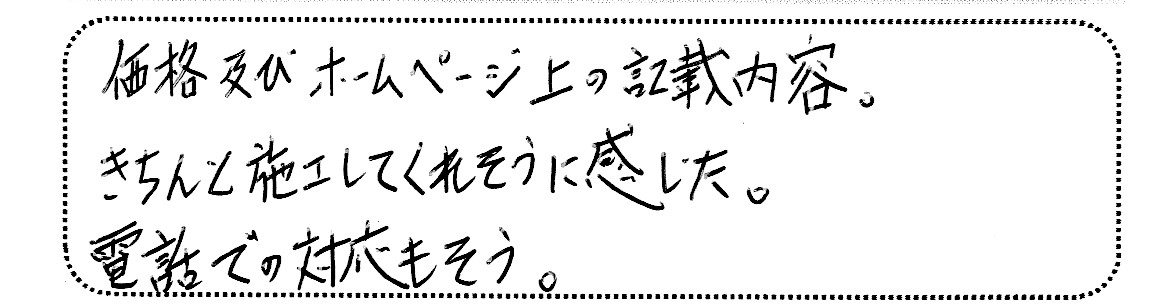 価格及びホームページ上の記載内容。
きちんと施工してくれそうに感じた。
電話での対応もそう。